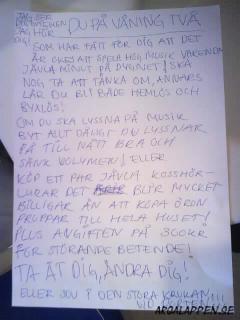 JAG SER
DIG VARKEN
JAG HÖR
DIG!
DU PÅ VÅNING TVÅ
SOM HAR FÅTT FÖR DIG ATT DET
ÄR OKEJ ATT SPELA HÖG MUSIK VARENDA
JÄVLA MINUT PÅ DYGNET! SKA
NOG TA ATT TÄNKA OM, ANNARS
LÄR DU BLI BÅDE HEMLÖS OCH
BYXLÖS!
OM DU SKA LYSSNA PÅ MUSIK
BYT ALLT DÅLIGT DU LYSSNAR
PÅ TILL NÅTT BRA OCH
SÄNK VOLYMEN! ELLER
KÖP ETT PAR JÄVLA KOSSHÖR-
LURAR DET BLIR MYCKET
BILLIGAR ÄN ATT KÖPA ÖRON
PROPPAR TILL HELA HUSET!
PLUS AVGIFTEN PÅ 300KR
FÖR STÖRANDE BETENDE!
TA ÅT DIG, ÄNDRA DIG!
ELLER I DEN STORA KRUKAN
VID PORTEN!!!
ARGALAPPEN.SE